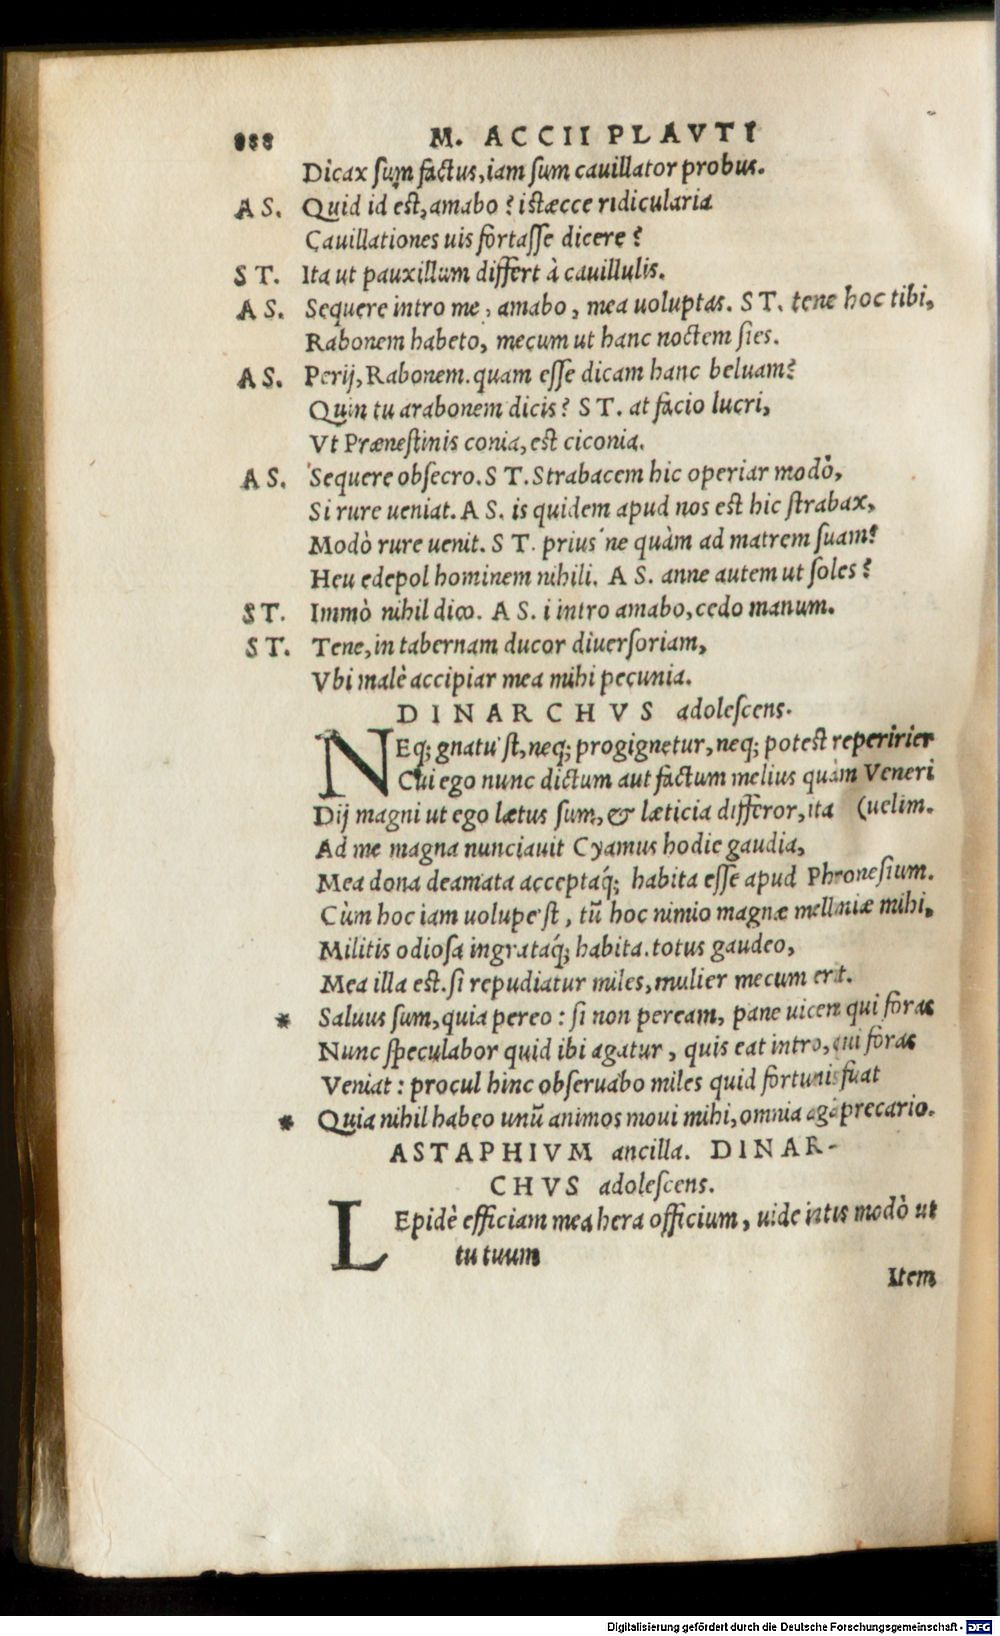 888 M. ACCII PLAVTI
Dicax sum factus, iam sum cauillator probus.
AS. Quid id est, amabo? istæcce ridicularia
Cauillationes uis fortasse dicere?
ST. Ita ut pauxillum differt à cauillulis.
AS. Sequere intro me, amabo, mea uoluptas. ST. tene hoc tibi,
Rabonem habeto, mecum ut hanc noctem sies.
AS. Perij, Rabonem. quam esse dicam hanc beluam?
Quin tu arabonem dicis? ST. at facio lucri,
Vt Prænestinis conia, est ciconia.
AS. Sequere obsecro. ST. Strabacem hic operiar modò,
Si rure ueniat. AS. is quidem apud nos est hic strabax,
Modò rure uenit. ST. prius'ne quàm ad matrem suam?
Heu edepol hominem nihili. AS. anne autem ut soles?
ST. Immò nihil dico. AS. i intro amabo, cedo manum.
ST. Tene, in tabernam ducor diuersoriam,
Vbi malè accipiar mea mihi pecunia.
DINARCHVS adolescens.
NEq; gnatu'st, neq; progignetur, neq; potest reperirier
Cui ego nunc dictum aut factum melius quàm Veneri
Dij magni ut ego lætus sum, & læticia differor, ita (uelim.
Ad me magna nunciauit Cyamus hodie gaudia,
Mea dona deamata acceptaq́; habita esse apud Phronesium.
Cùm hoc iam uolupe'st, tũ hoc nimio magnæ mellniæ mihi,
Militis odiosa ingrataq́; habita. totus gaudeo,
Mea illa est. si repudiatur miles, mulier mecum erit.
* Saluus sum, quia pereo: si non peream, pane uicem qui foras
Nunc speculabor quid ibi agatur, quis eat intro, qui foras
Veniat: procul hinc obseruabo miles quid fortunis fuat
* Quia nihil habeo unũ animos moui mihi, omnia agã precario.
ASTAPHIVM ancilla. DINAR-
CHVS adolescens.
LEpidè efficiam mea hera officium, uide intus modò ut
tu tuum
Item
Digitalisierung gefördert durch die Deutsche Forschungsgemeinschaft - DFG